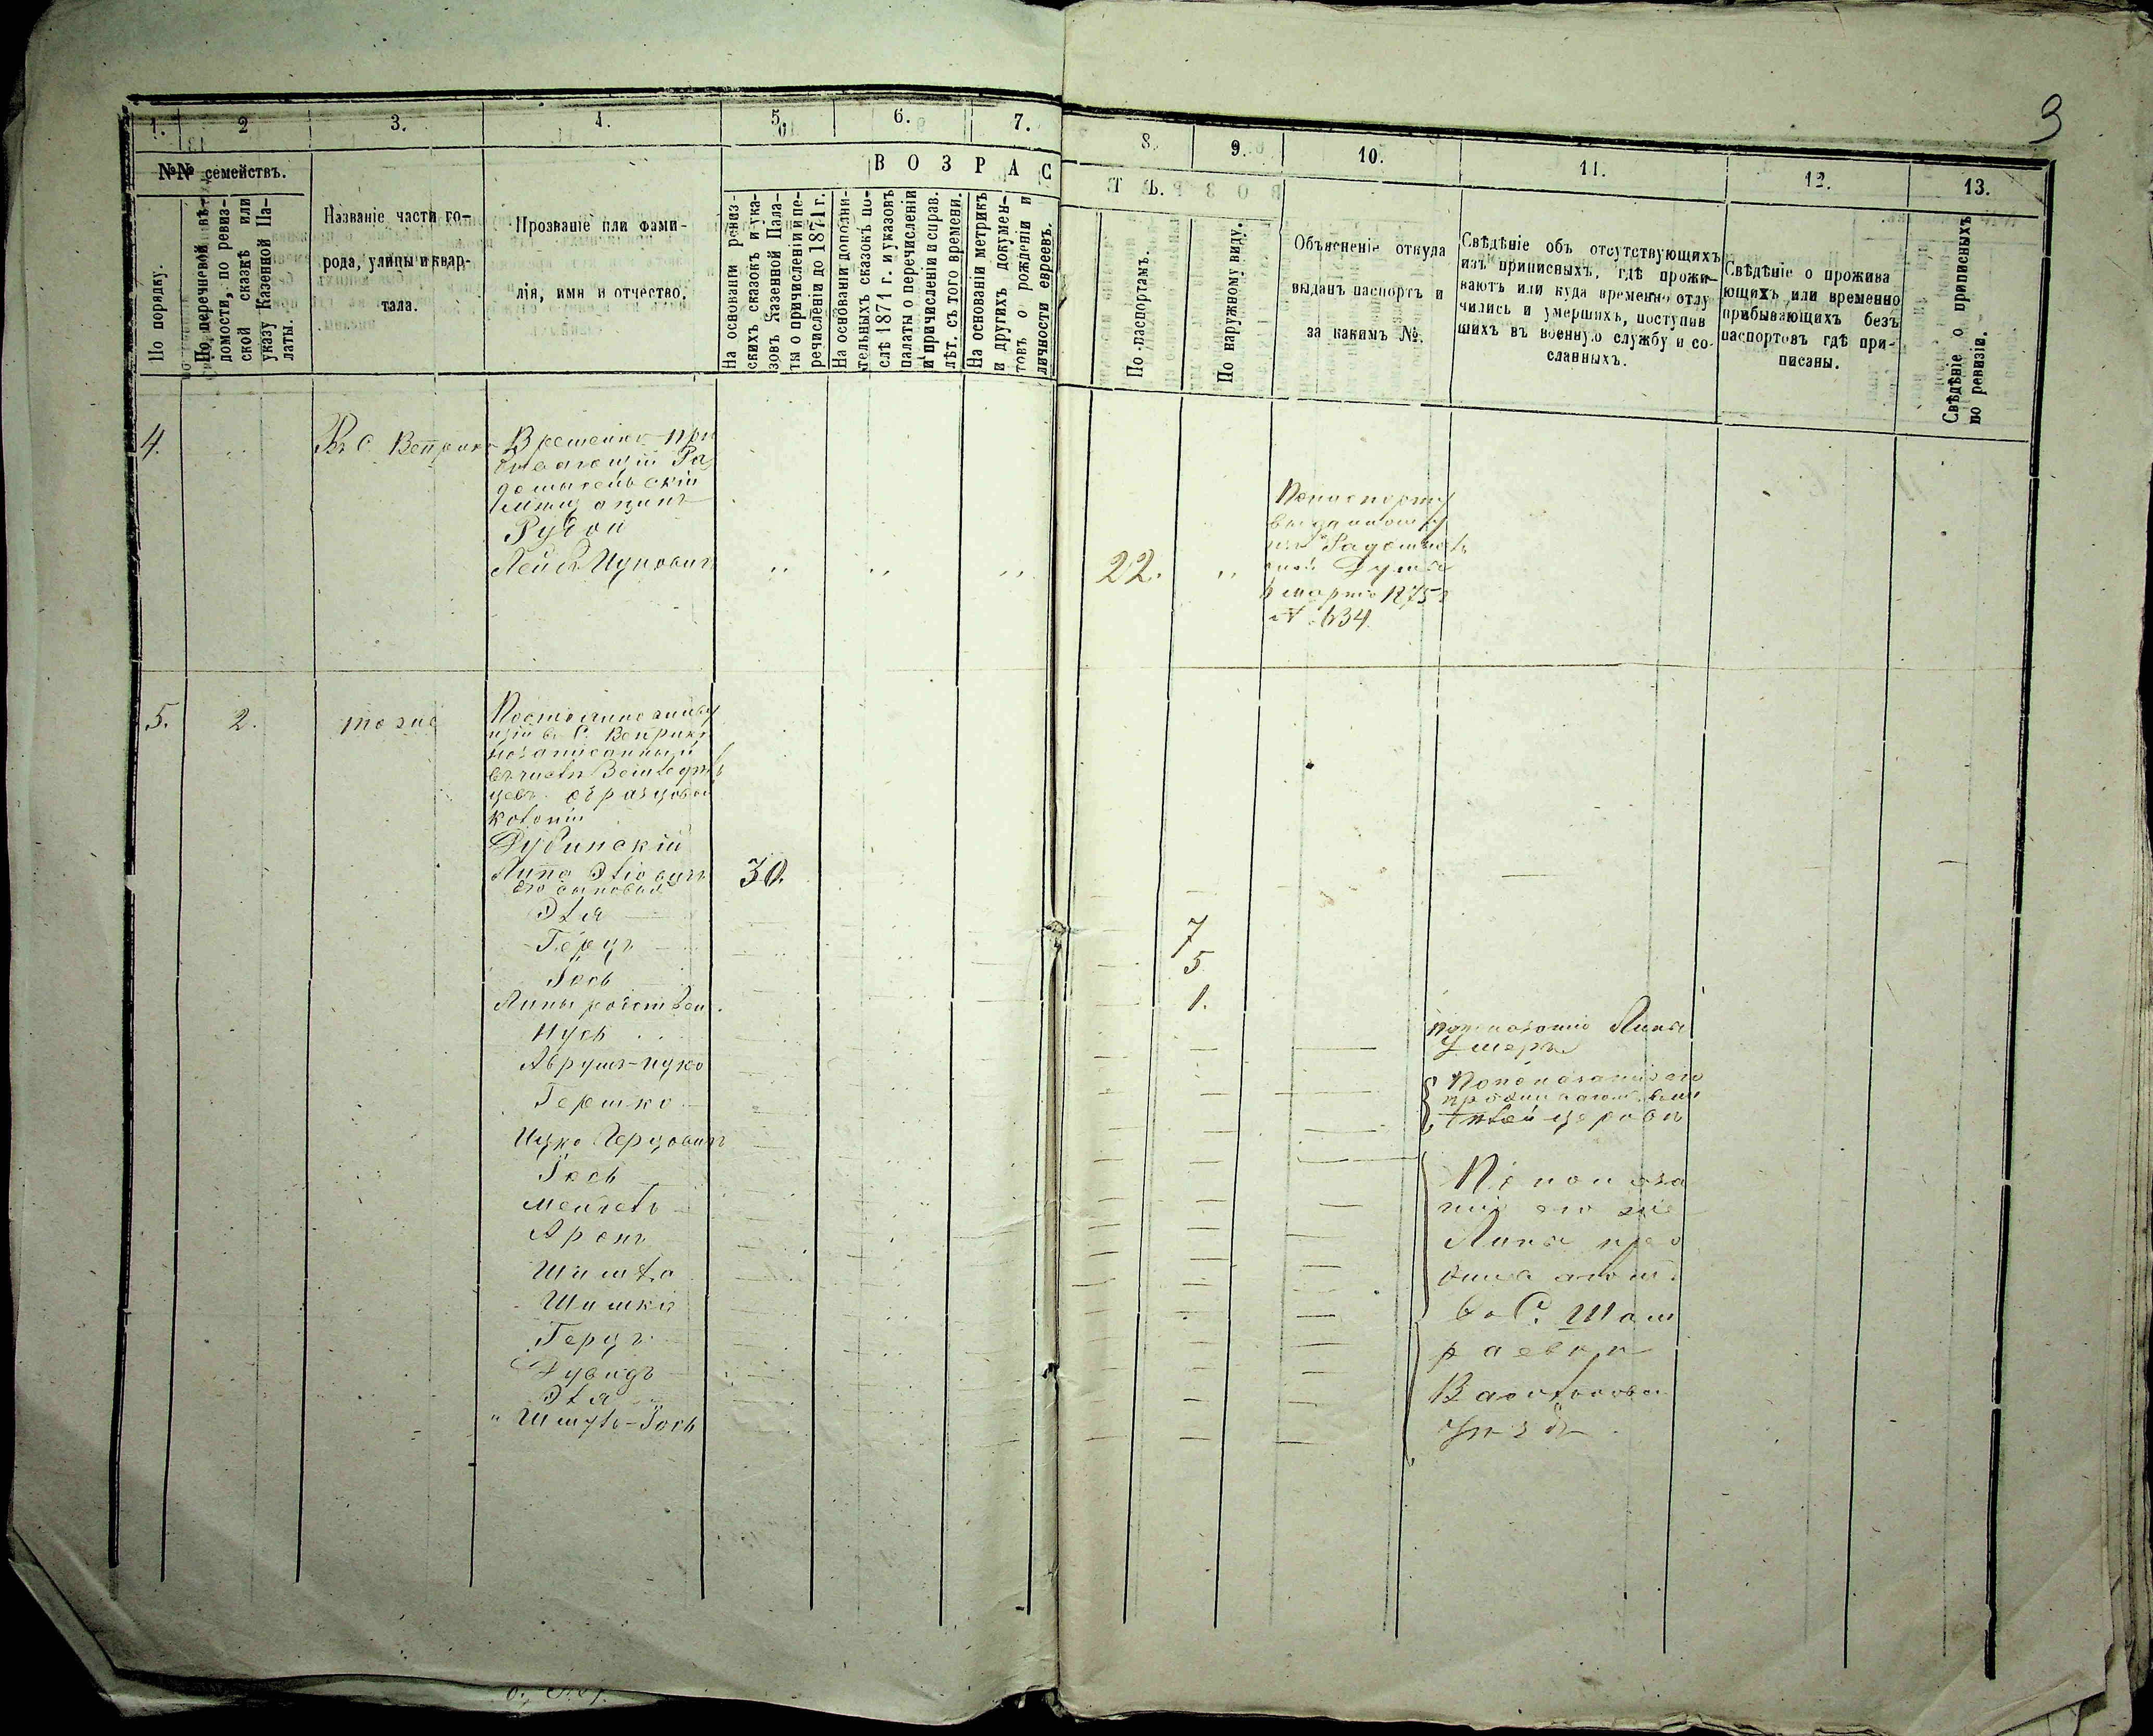 3
1. 2 3. 4. 5. 6. 7. 8. 9. 10. 11. 12. 13.
№№ семействъ.
По порядку.
По перечневой вѣ-
домости, по ревиз-
ской сказкѣ или
указу Казенной Па-
латы.
Названіе части го-
рода, улицы и квар-
тала.
Прозваніе или фами-
лія, имя и отчество.
ВОЗРАСТЪ.
На основаніи ревиз-
скихъ сказокъ и ука-
зовъ Казенной Пала-
ты о причисленіи и пе-
речисленіи до 1871 г.
На основаніи дополни-
тельныхъ сказокъ по-
слѣ 1871 г. и указовъ
палаты о перечисленіи
и причисленіи и справ.
лѣт. съ того времени.
На основаніи метрикъ
и другихъ докумен-
товъ о рожденіи и
личности евреевъ.
По паспортамъ.
По наружному виду.
Объясненіе откуда
выданъ паспортъ и
за какимъ №.
Свѣдѣніе объ отсутствующихъ
изъ приписныхъ, гдѣ прожи-
ваютъ или куда временно отлу
чились и умершихъ, поступив
шихъ въ военную службу и со-
сланныхъ.
Свѣдѣніе о прожива
ющихъ или временно
прибывающихъ безъ
паспортовъ гдѣ при-
писаны.
Свѣдѣніе о приписныхъ
по ревизіи.
4.
Въ С. Веприкѣ
Временно при
бывающій Ра
домысльскій
мѣщанинъ
Рудой
Лейба Ицковичъ
22.
По паспорту
выданному
изъ Радомысль
ской Думы
марта 1875 г
№ 634
5.
2.
тоже
Постоянно живу
щій въ С. Веприкѣ
но записанный
въ числѣ Земледѣль
цевъ образцовой
колоніи
Дубинскій
Липа Эліовичъ
30.
Его сыновья
Эля
7
Герцъ
5
Іось
1.
Липы родствен.
Нусь
По показанію Липы
Умеръ
Аврумъ-Ицко
Гершко
По показанію его
проживаютъ въ
Бѣлой церквѣ
Ицко Герцовичъ
Іось
Мендель
Аронъ
Шмилѣ
Шимко
Герцъ
Дувидъ
Эля
Шмуль-Іось
По показа
нію его же
Липы про
живаютъ
въ С. Шам
раевкѣ
Васильков
уѣзда